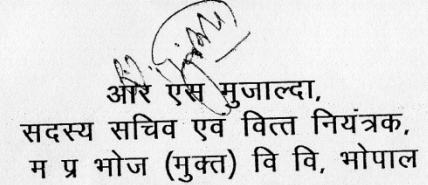 आर एस मुजाल्दा,
सदस्य सचिव एवं वित्त नियंत्रक,
म प्र भोज (मुक्त) वि वि, भोपाल